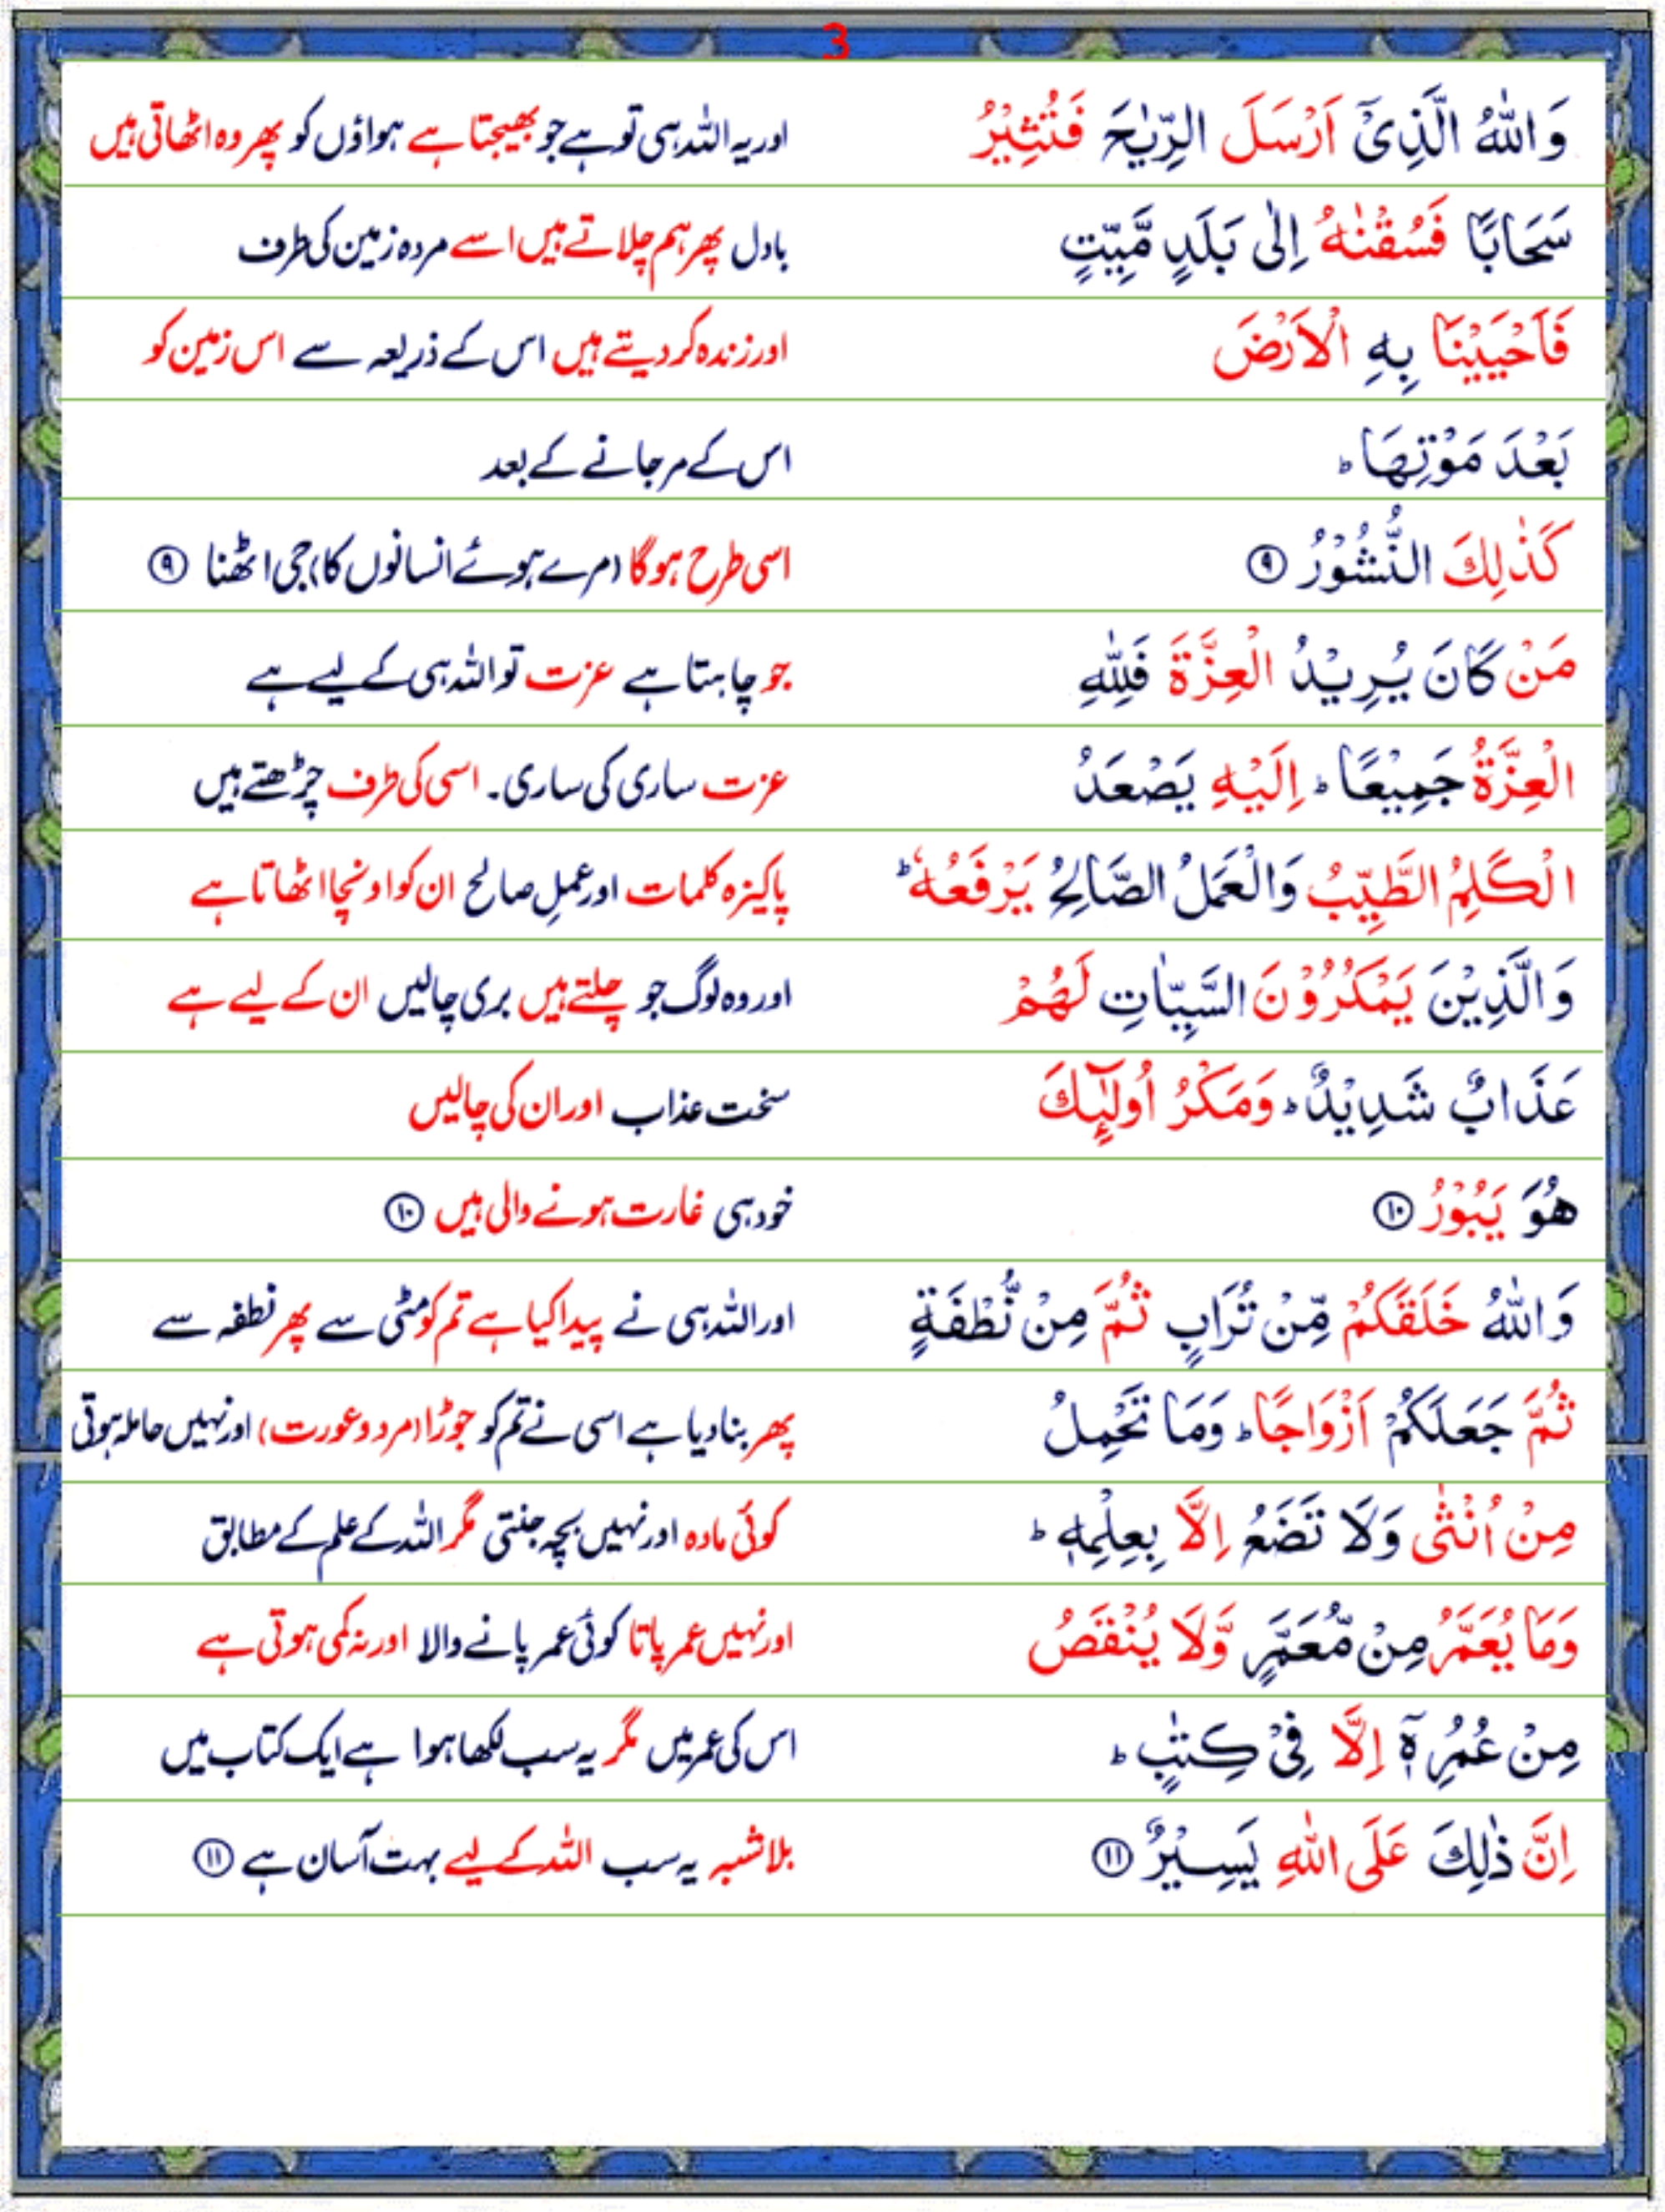 3
وَاللّٰهُ الَّذِيْٓ اَرْسَلَ الرِّيٰحَ فَتُثِيْرُ اور یہ اللہ ہی تو ہے جو بھیجتا ہے ہواؤں کو پھر وہ اٹھاتی ہیں
سَحَابًا فَسُقْنٰهُ اِلٰى بَلَدٍ مَّيِّتٍ بادل پھر ہم چلاتے ہیں اسے مردہ زمین کی طرف
فَاَحْيَيْنَا بِهِ الْاَرْضَ اور زندہ کر دیتے ہیں اس کے ذریعہ سے اس زمین کو
بَعْدَ مَوْتِهَا ؕ اس کے مر جانے کے بعد
كَذٰلِكَ النُّشُوْرُ ۹ اسی طرح ہوگا (مرے ہوئے انسانوں کا) جی اٹھنا ۹
مَنْ كَانَ يُرِيْدُ الْعِزَّةَ فَلِلّٰهِ جو چاہتا ہے عزت تو اللہ ہی کے لیے ہے
الْعِزَّةُ جَمِيْعًا ؕ اِلَيْهِ يَصْعَدُ عزت ساری کی ساری۔ اسی کی طرف چڑھتے ہیں
الْكَلِمُ الطَّيِّبُ وَالْعَمَلُ الصَّالِحُ يَرْفَعُهٗ ؕ پاکیزہ کلمات اور عملِ صالح ان کو اونچا اٹھاتا ہے
وَالَّذِيْنَ يَمْكُرُوْنَ السَّيِّاٰتِ لَهُمْ اور وہ لوگ جو چلتے ہیں بری چالیں ان کے لیے ہے
عَذَابٌ شَدِيْدٌ ؕ وَمَكْرُ اُولٰٓئِكَ سخت عذاب اور ان کی چالیں
هُوَ يَبُوْرُ ۱۰ خود ہی غارت ہونے والی ہیں ۱۰
وَاللّٰهُ خَلَقَكُمْ مِّنْ تُرَابٍ ثُمَّ مِنْ نُّطْفَةٍ اور اللہ ہی نے پیدا کیا ہے تم کو مٹی سے پھر نطفہ سے
ثُمَّ جَعَلَكُمْ اَزْوَاجًا ؕ وَمَا تَحْمِلُ پھر بنا دیا ہے اسی نے تم کو جوڑا (مرد و عورت) اور نہیں حاملہ ہوتی
مِنْ اُنْثٰى وَلَا تَضَعُ اِلَّا بِعِلْمِهٖ ؕ کوئی مادہ اور نہیں بچہ جنتی مگر اللہ کے علم کے مطابق
وَمَا يُعَمَّرُ مِنْ مُّعَمَّرٍ وَّلَا يُنْقَصُ اور نہیں عمر پاتا کوئی عمر پانے والا اور نہ کمی ہوتی ہے
مِنْ عُمُرِهٖٓ اِلَّا فِيْ كِتٰبٍ ؕ اس کی عمر میں مگر یہ سب لکھا ہوا ہے ایک کتاب میں
اِنَّ ذٰلِكَ عَلَى اللّٰهِ يَسِيْرٌ ۱۱ بلاشبہ یہ سب اللہ کے لیے بہت آسان ہے ۱۱